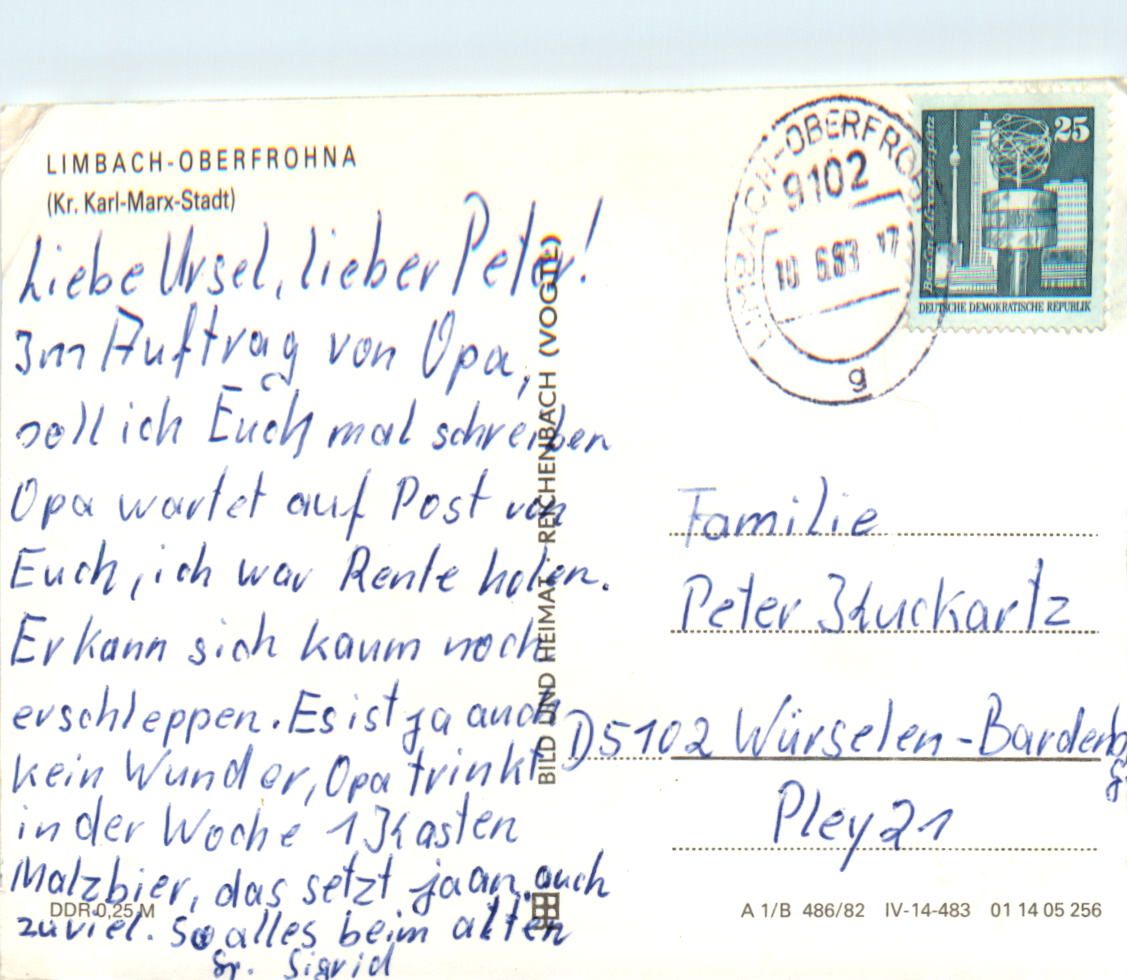 LIMBACH-OBERFROHNA
(Kr. Karl-Marx-Stadt)
Liebe Ursel, lieber Peter!
Im Auftrag von Opa,
soll ich Euch mal schreiben
Opa wartet auf Post von
Euch, ich war Rente holen.
Er kann sich kaum noch
erschleppen. Es ist ja auch
kein Wunder, Opa trinkt
in der Woche 1 Kasten
Malzbier, das setzt ja an. auch
zuviel. So alles beim alten
Gr. Sigrid
DDR 0,25 M
BILD UND HEIMAT · REICHENBACH (VOGTL)
LIMBACH-OBERFROHNA
9102
10 6.83 17
g
25
Berlin, Alexanderplatz
DEUTSCHE DEMOKRATISCHE REPUBLIK
Familie
Peter Kuckartz
D5102 Würselen-Bardenb
g.
Pley 21
A 1/B 486/82 IV-14-483 01 14 05 256